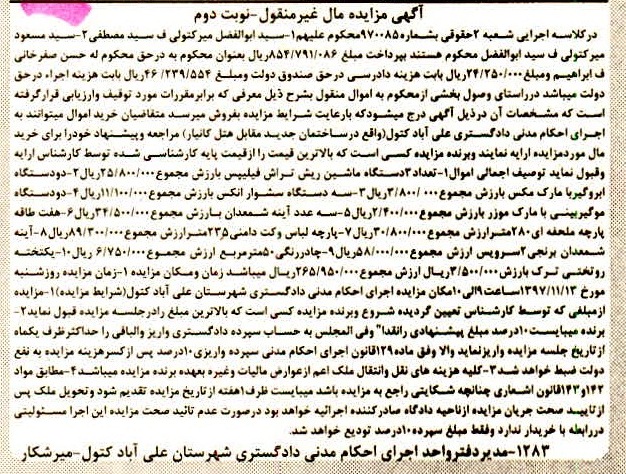 آگهی مزایده مال غیرمنقول-نوبت دوم
درکلاسه اجرایی شعبه ۲حقوقی بشماره۹۷۰۰۸۵محکوم علیهم۱-سید ابوالفضل میرکتولی ف سید مصطفی۲-سید مسعود
میرکتولی ف سید ابوالفضل محکوم هستند بپرداخت مبلغ ۸۵۴/۷۹۱/۰۸۶ریال بعنوان محکوم به درحق محکوم له حسن صفرخانی
ف ابراهیم ومبلغ۲۴/۲۵۰/۰۰۰ریال بابت هزینه دادرسی درحق صندوق دولت ومبلغ ۴۶/۲۳۹/۵۵۴ریال بابت هزینه اجراء درحق
دولت میباشد درراستای وصول بخشی ازمحکوم به اموال منقول بشرح ذیل معرفی که برابرمقررات مورد توقیف وارزیابی قرارگرفته
است که مشخصات آن درذیل آگهی درج میشودکه بارعایت شرایط مزایده بفروش میرسد متقاضیان خرید اموال میتوانند به
اجرای احکام مدنی دادگستری علی آباد کتول(واقع درساختمان جدید مقابل هتل کانیار) مراجعه وپیشنهاد خودرا برای خرید
مال موردمزایده ارایه نمایند وبرنده مزایده کسی است که بالاترین قیمت را ازقیمت پایه کارشناسی شده توسط کارشناس ارایه
وقبول نماید توصیف اجمالی اموال۱-تعداد۳دستگاه ماشین ریش تراش فیلیپس بارزش مجموع۲۵/۸۰۰/۰۰۰ریال۲-دودستگاه
ابروگیربا مارک مکس بارزش مجموع۳/۸۰۰/۰۰۰ریال۳-سه دستگاه سشوار انکس بارزش مجموع۱۱/۱۰۰/۰۰۰ریال۴-دودستگاه
موگیربینی با مارک موزر بارزش مجموع۲/۴۰۰/۰۰۰ریال۵-سه عدد آینه شمعدان بارزش مجموع۳۴/۵۰۰/۰۰۰ریال۶-هفت طاقه
پارچه ملحفه ای۲۸۰مترارزش مجموع۳۰/۸۰۰/۰۰۰ریال۷-پارچه لباس وکت دامنی۲۳٫۵مترارزش مجموع۸۹/۳۰۰/۰۰۰ریال۸-آینه
شمعدان برنجی۲سرویس ارزش مجموع۵۸/۰۰۰/۰۰۰ریال۹-چادررنگی۵۰مترمربع ارزش مجموع ۶/۷۵۰/۰۰۰ ریال۱۰-یکتخته
روتختی ترک بارزش ۳/۵۰۰/۰۰۰ریال ارزش مجموع۲۶۵/۹۵۰/۰۰۰ریال میباشد زمان ومکان مزایده ۱-زمان مزایده روزشنبه
مورخ ۱۳۹۷/۱۱/۱۳ساعت۹الی۱۰مکان مزایده اجرای احکام مدنی دادگستری شهرستان علی آباد کتول(شرایط مزایده)۱-مزایده
ازمبلغی که توسط کارشناس تعیین گردیده شروع وبرنده مزایده کسی است که بالاترین مبلغ رادرجلسه مزایده قبول نماید۲-
برنده میبایست۱۰درصد مبلغ پیشنهادی رانقدا" وفی المجلس به حساب سپرده دادگستری واریز والباقی را حداکثرظرف یکماه
ازتاریخ جلسه مزایده واریزنماید والا وفق ماده۱۲۹قانون اجرای احکام مدنی سپرده واریزی۱۰درصد پس ازکسرهزینه مزایده به نفع
دولت ضبط خواهد شد۳-کلیه هزینه های نقل وانتقال ملک اعم ازعوارض مالیات وغیره بعهده برنده مزایده میباشد۴-مطابق مواد
۱۴۲و۱۴۳قانون اشعاری چنانچه شکایتی راجع به مزایده باشد میبایست ظرف۱هفته ازتاریخ مزایده تقدیم شود وتحویل ملک پس
ازتایید صحت جریان مزایده ازناحیه دادگاه صادرکننده اجرائیه خواهد بود درصورت عدم تائید صحت مزایده این اجرا مسئولیتی
دررابطه با خریدار ندارد وفقط مبلغ سپرده۱۰درصد تودیع خواهد شد.
۱۲۸۳-مدیردفترواحد اجرای احکام مدنی دادگستری شهرستان علی آباد کتول-میرشکار